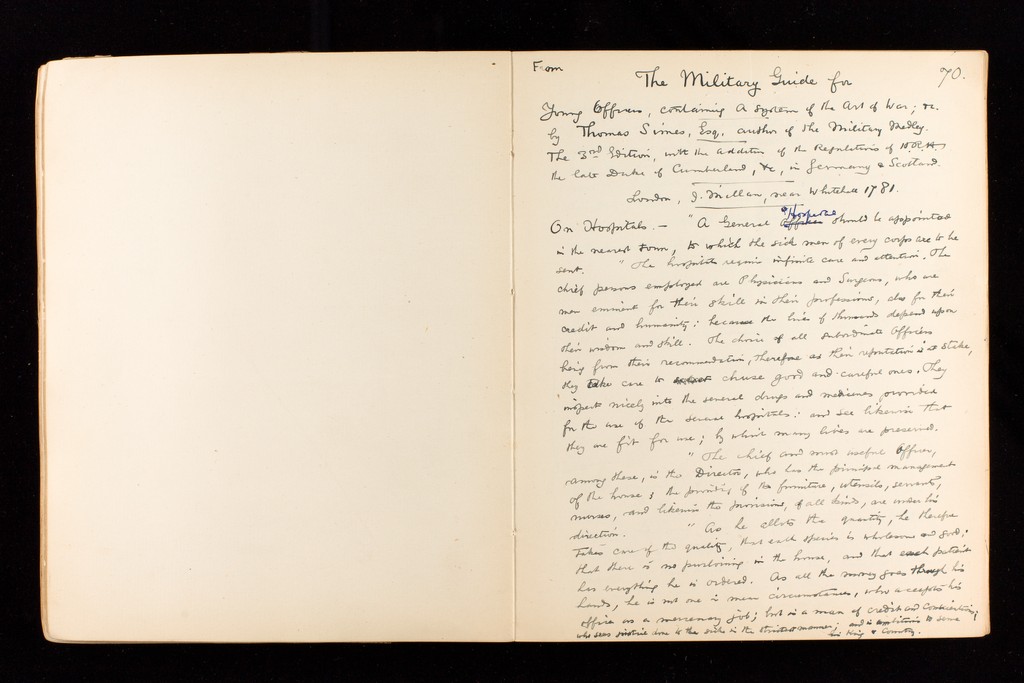 From
70.
The Military Guide for
Young Officers, containing A System of the Art of War; &c.
by Thomas Simes, Esq. author of the Military Medley.
The 3rd Edition, with the addition of the Regulations of H.R.H.
the late Duke of Cumberland, &c, in Germany & Scotland.
London, J. Millan, near Whitehall 1781.
On Hospitals. — "A General Hospital should be appointed
in the nearest town, to which the sick men of every corps are to be
sent. "The hospitals require infinite care and attention. The
chief persons employed are Physicians and Surgeons, who are
men eminent for their skill in their professions, also for their
credit and humanity: because the lives of thousands depend upon
their wisdom and skill. The choice of all subordinate Officers
being from their recommendation, therefore as their reputation is at stake,
they take care to chuse good and careful ones. They
inspect nicely into the several drugs and medicines provided
for the use of the several hospitals: and see likewise that
they are fit for use; by which many lives are preserved.
"The chief and most useful Officer,
among these, is the Director, who has the principal management
of the house; the providing of the furniture, utensils, servants,
nurses, and likewise the provisions, of all kinds, are under his
direction. "As he allots the quantity, he therefore
takes care of the quality, that each species is wholesome and good;
that there is no purloining in the house, and that each patient
has everything he is ordered. As all the money goes through his
hands, he is not one in mean circumstances, who accepts his
office as a mercenary job; but is a man of credit and conscientious;
who sees justice done to the sick in the strictest manner; and is ambitious to serve
his King & Country.